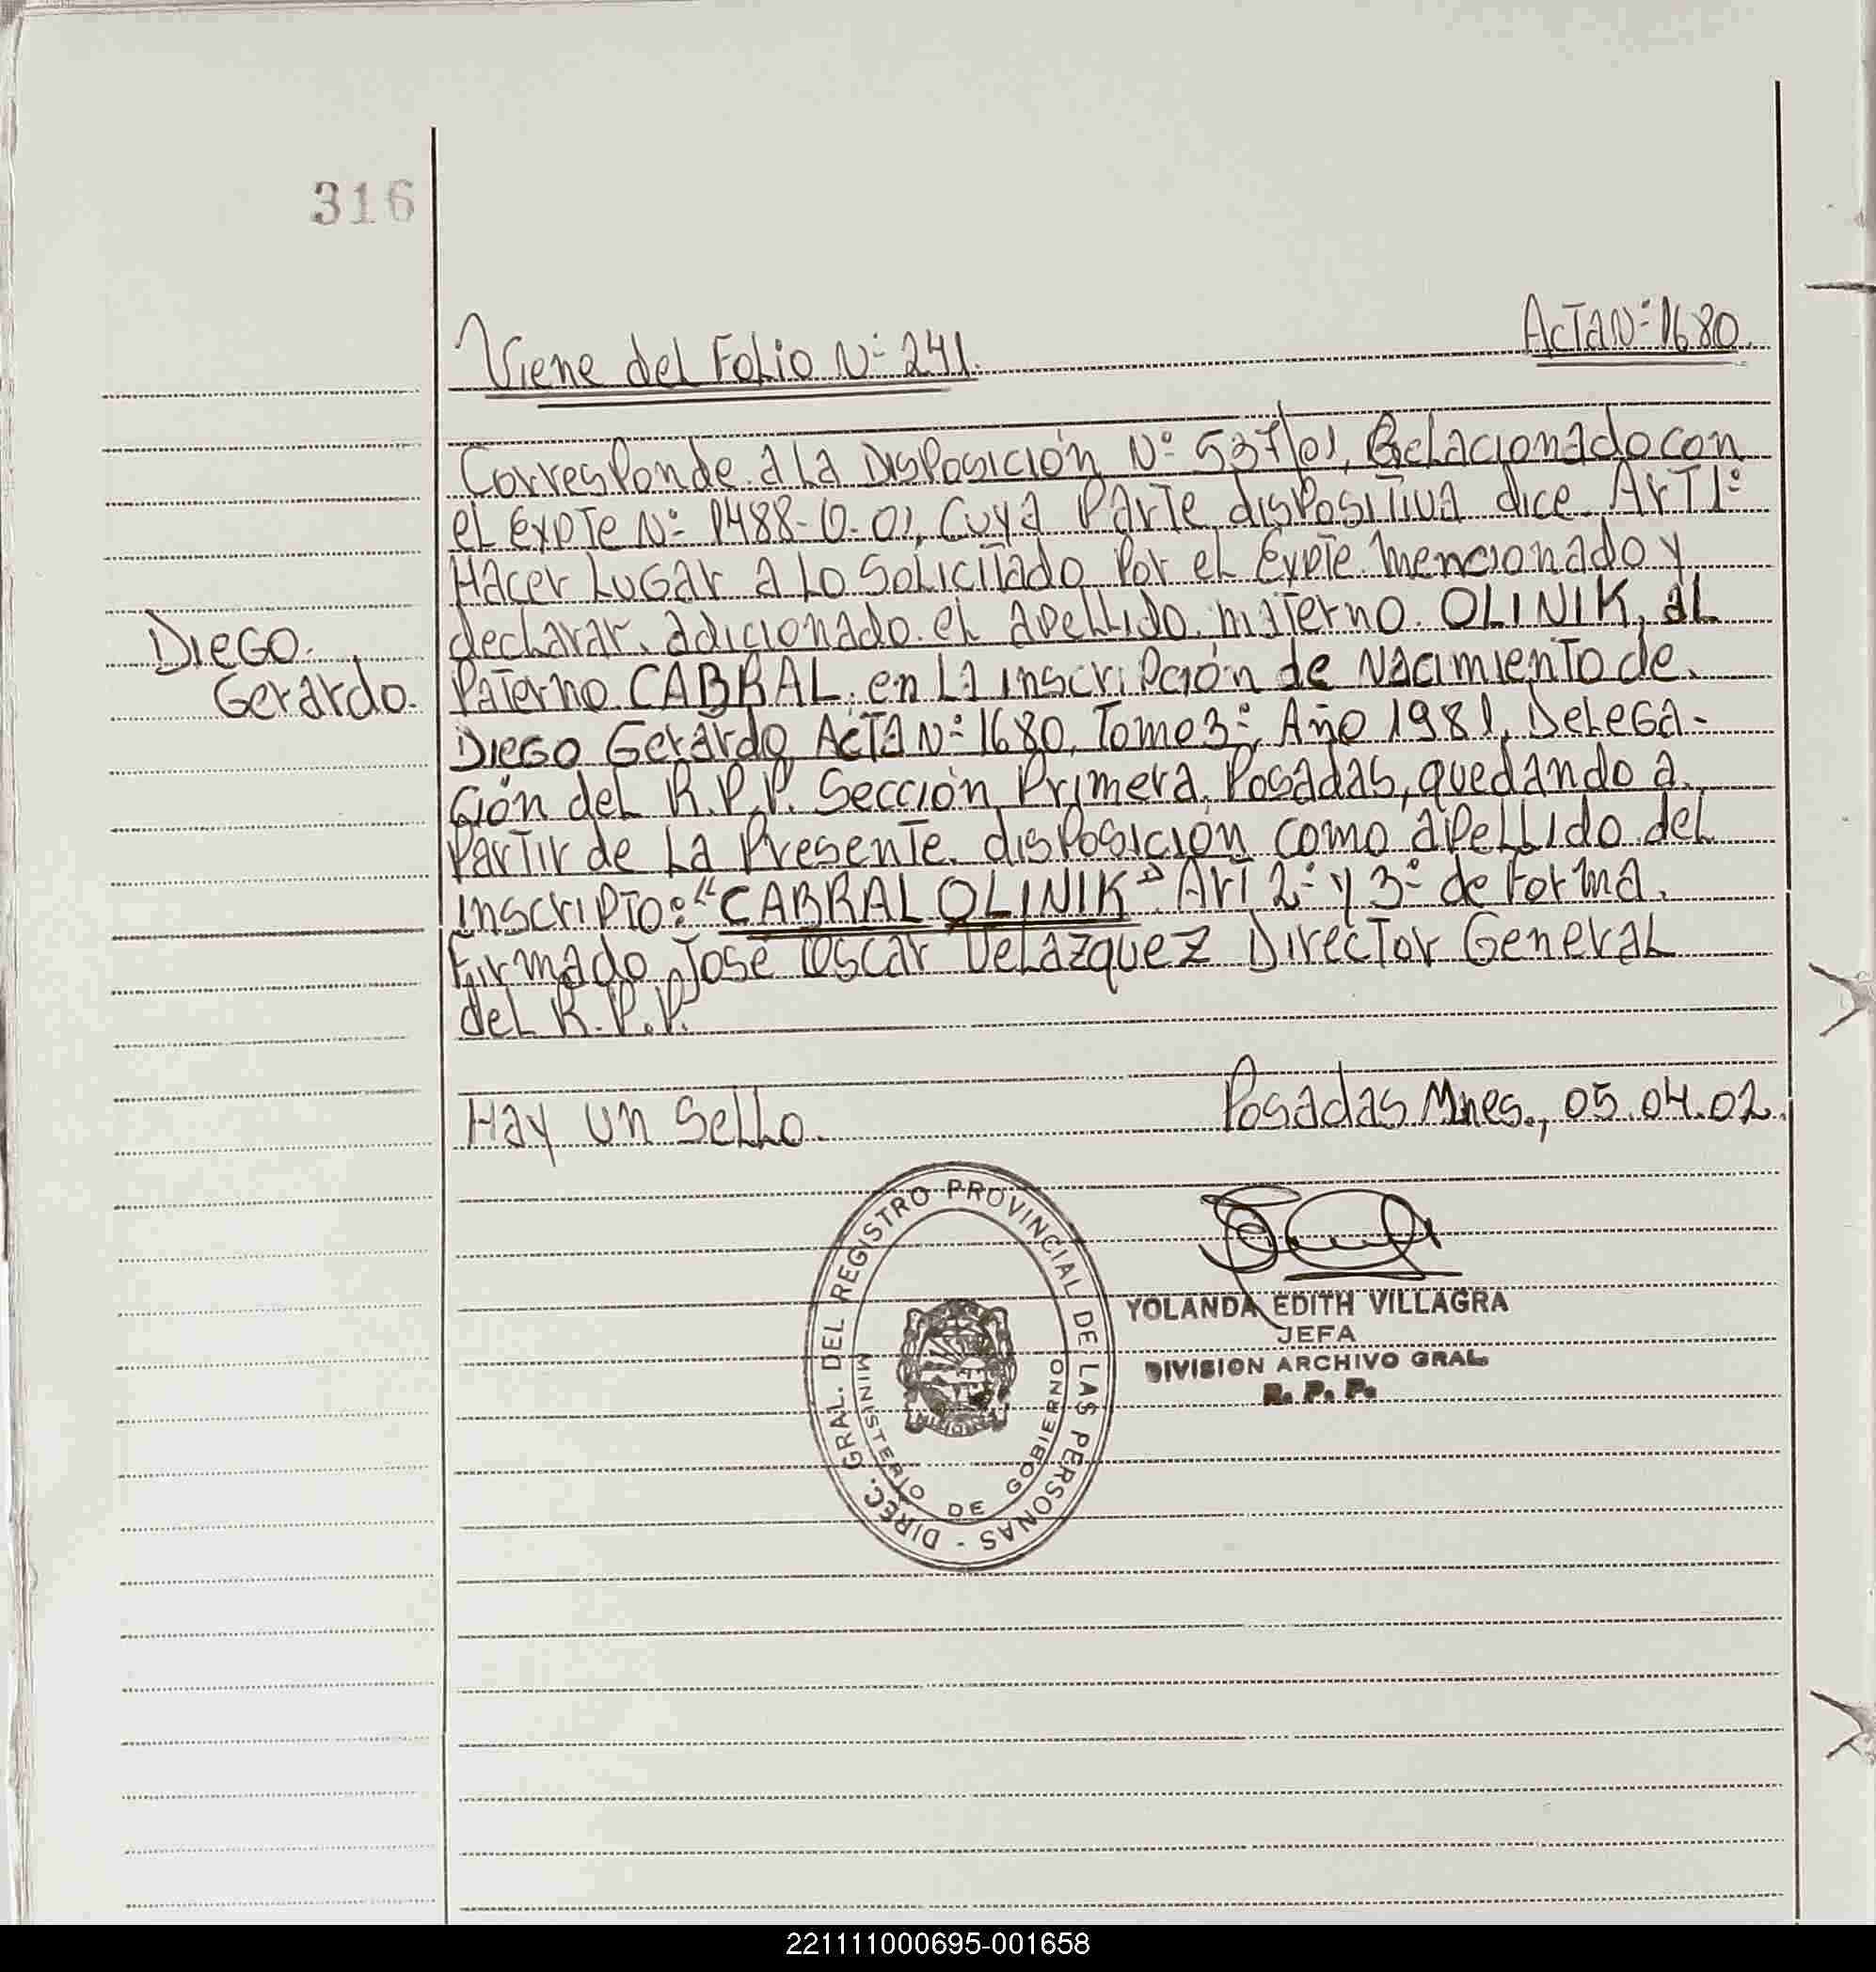 316
Viene del Folio N° 241.
Acta N° 1680.
Corresponde a la Disposición N° 537/01, Relacionado con
el Expte N° 1488-O-01, Cuya Parte dispositiva dice Art 1°
Hacer Lugar a lo Solicitado Por el Expte. mencionado y
declarar, adicionado el apellido materno OLINIK, al
Diego
Gerardo.
Paterno CABRAL, en la inscripción de Nacimiento de
Diego Gerardo Acta N° 1680, Tomo 3°, Año 1981, Delega-
ción del R.P.P. Sección Primera, Posadas, quedando a
Partir de la Presente disposición como apellido del
inscripto: "CABRAL OLINIK". Art 2° y 3° de Forma.
Firmado José Oscar Velazquez Director General
del R.P.P.
Hay un Sello.
Posadas Mnes., 05.04.02.
DIREC. GRAL. DEL REGISTRO PROVINCIAL DE LAS PERSONAS -
MINISTERIO DE GOBIERNO
YOLANDA EDITH VILLAGRA
JEFA
DIVISION ARCHIVO GRAL.
R. P. P.
221111000695-001658